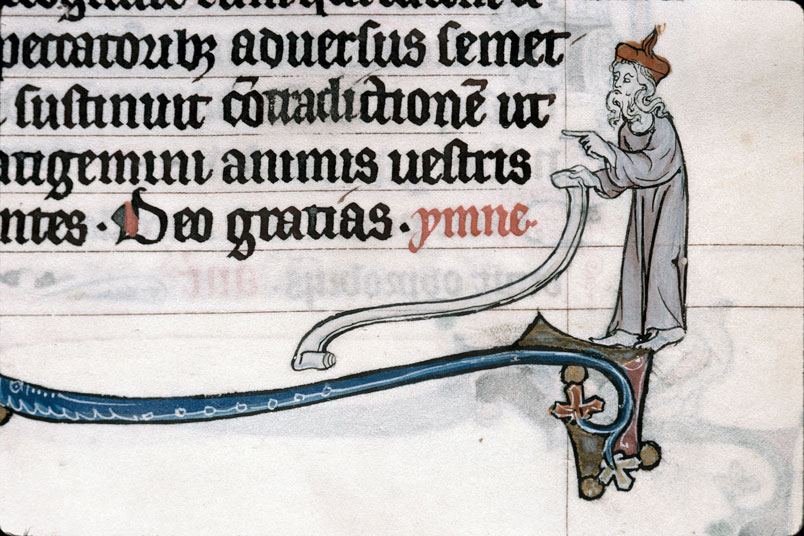 peccatorib; aduersus semet
sustinuit cōtradictionē ut
atigemini animis uestris
ntes · Deo gratias · ymne·